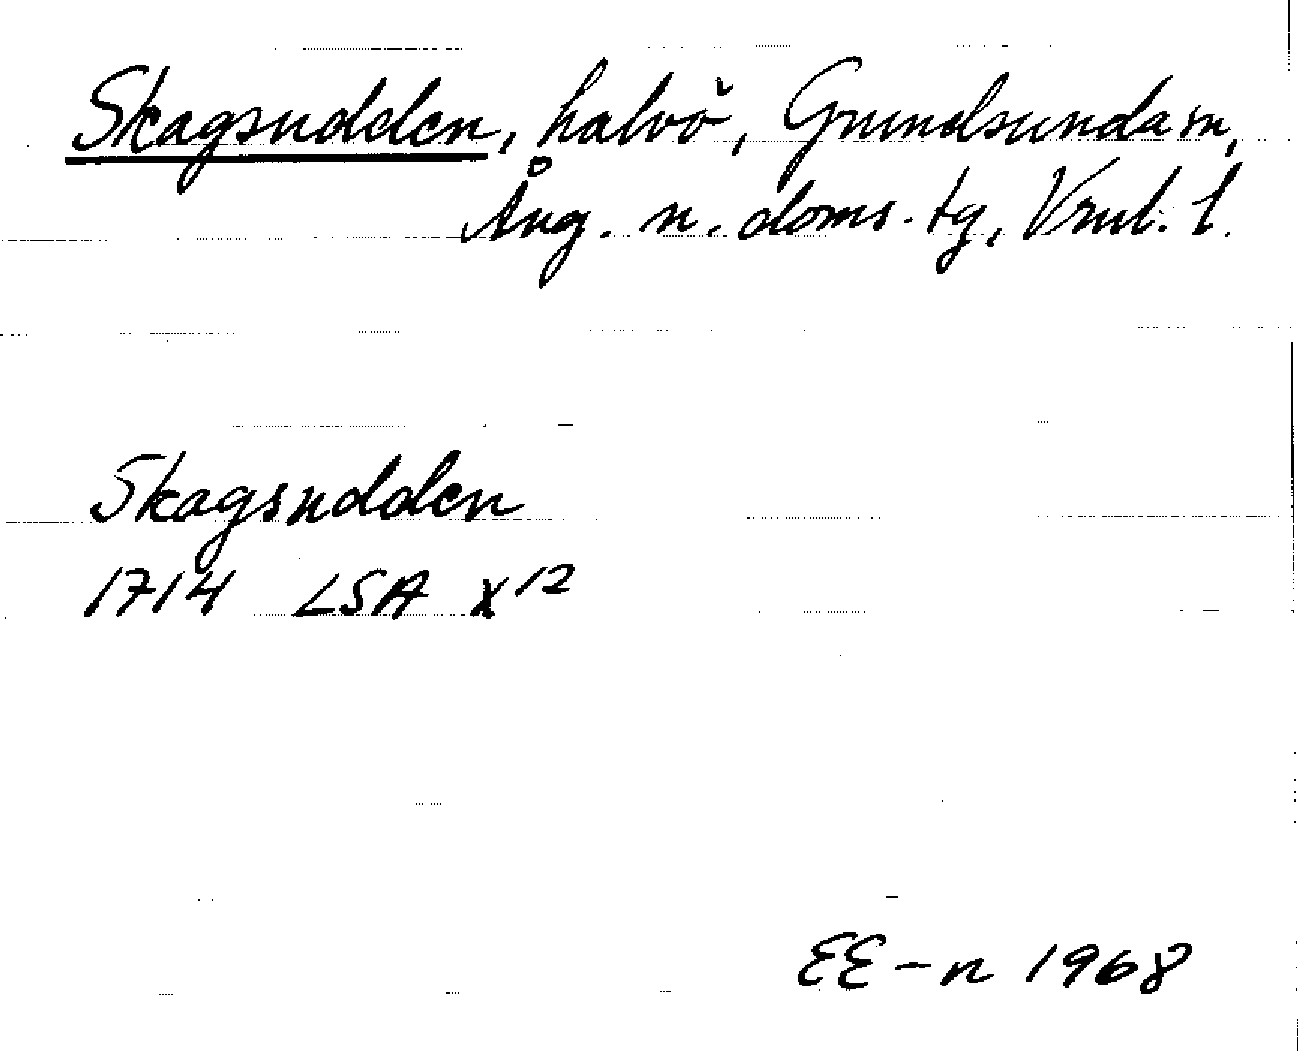 Skagsudden, halvö, Grundsunda sn,
Ång. n. doms. tg, Vnrl. l.
Skagsudden
1714 LSA X 12
EE-n 1968